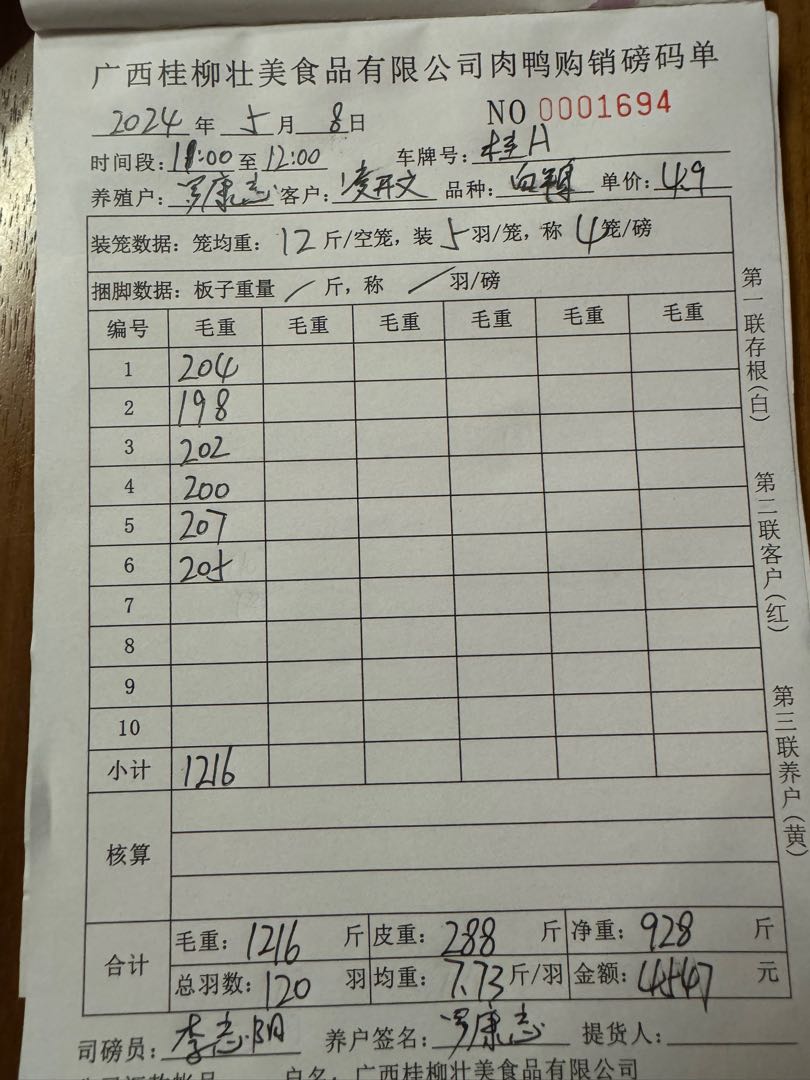 广西桂柳壮美食品有限公司肉鸭购销磅码单
2024 年 5 月 8 日 NO 0001694
时间段: 11:00 至 12:00 车牌号: 桂A
养殖户: 罗康志 客户: 凌开文 品种: 白鸭 单价: 4.9
装笼数据: 笼均重: 12 斤/空笼, 装 5 羽/笼, 称 4 笼/磅
捆脚数据: 板子重量 / 斤, 称 / 羽/磅
编号 毛重 毛重 毛重 毛重 毛重 毛重
1 204
2 198
3 202
4 200
5 207
6 205
7
8
9
10
小计 1216
核算
合计 毛重: 1216 斤 皮重: 288 斤 净重: 928 斤
总羽数: 120 羽 均重: 7.73 斤/羽 金额: 4547 元
司磅员: 李志阳 养户签名: 罗康志 提货人:
户名: 广西桂柳壮美食品有限公司
第一联存根(白)
第二联客户(红)
第三联养户(黄)